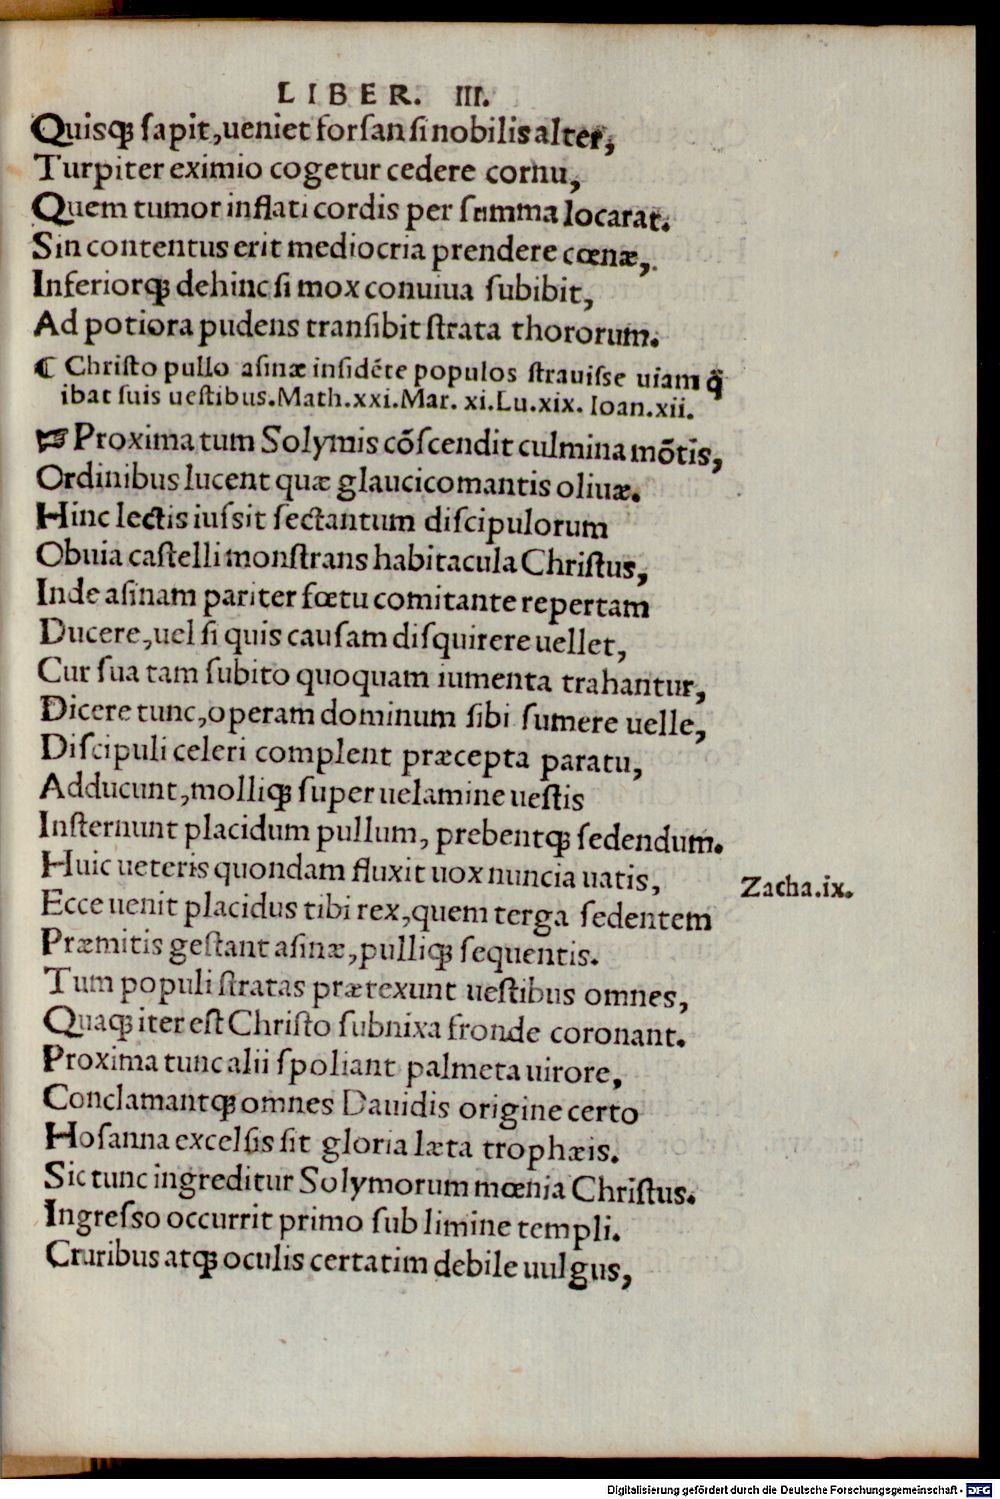 LIBER. III.
Quisqꝫ ſapit, ueniet forſan ſi nobilis alter,
Turpiter eximio cogetur cedere cornu,
Quem tumor inflati cordis per ſumma locarat.
Sin contentus erit mediocria prendere cœnæ,
Inferiorqꝫ dehinc ſi mox conuiua ſubibit,
Ad potiora pudens tranſibit ſtrata thororum.
⁋ Chriſto pullo aſinæ inſidẽte populos ſtrauiſſe uiam q̃
ibat ſuis ueſtibus. Math.xxi. Mar. xi. Lu.xix. Ioan.xii.
☞ Proxima tum Solymis cõſcendit culmina mõtis,
Ordinibus lucent quæ glaucicomantis oliuæ.
Hinc lectis iuſsit ſectantum diſcipulorum
Obuia caſtelli monſtrans habitacula Chriſtus,
Inde aſinam pariter fœtu comitante repertam
Ducere, uel ſi quis cauſam diſquirere uellet,
Cur ſua tam ſubito quoquam iumenta trahantur,
Dicere tunc, operam dominum ſibi ſumere uelle,
Diſcipuli celeri complent præcepta paratu,
Adducunt, molliqꝫ ſuper uelamine ueſtis
Inſternunt placidum pullum, prebentqꝫ ſedendum.
Huic ueteris quondam fluxit uox nuncia uatis,
Zacha.ix.
Ecce uenit placidus tibi rex, quem terga ſedentem
Præmitis geſtant aſinæ, pulliqꝫ ſequentis.
Tum populi ſtratas prætexunt ueſtibus omnes,
Quaqꝫ iter eſt Chriſto ſubnixa fronde coronant.
Proxima tunc alii ſpoliant palmeta uirore,
Conclamantqꝫ omnes Dauidis origine certo
Hoſanna excelſis ſit gloria læta trophæis.
Sic tunc ingreditur Solymorum mœnia Chriſtus.
Ingreſſo occurrit primo ſub limine templi.
Cruribus atqꝫ oculis certatim debile uulgus,
Digitalisierung gefördert durch die Deutsche Forschungsgemeinschaft - DFG